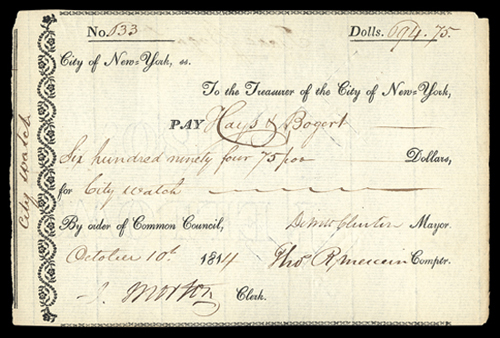 No. 533 Dolls. 694.75.
City of New-York, ss.
To the Treasurer of the City of New-York,
PAY Hays & Bogert
Six hundred ninety four 75/100 Dollars,
for City watch
By order of Common Council, DeWitt Clinton Mayor.
October 10th. 1814 Thos. R Mercein Comptr.
J. Morton Clerk.
City watch